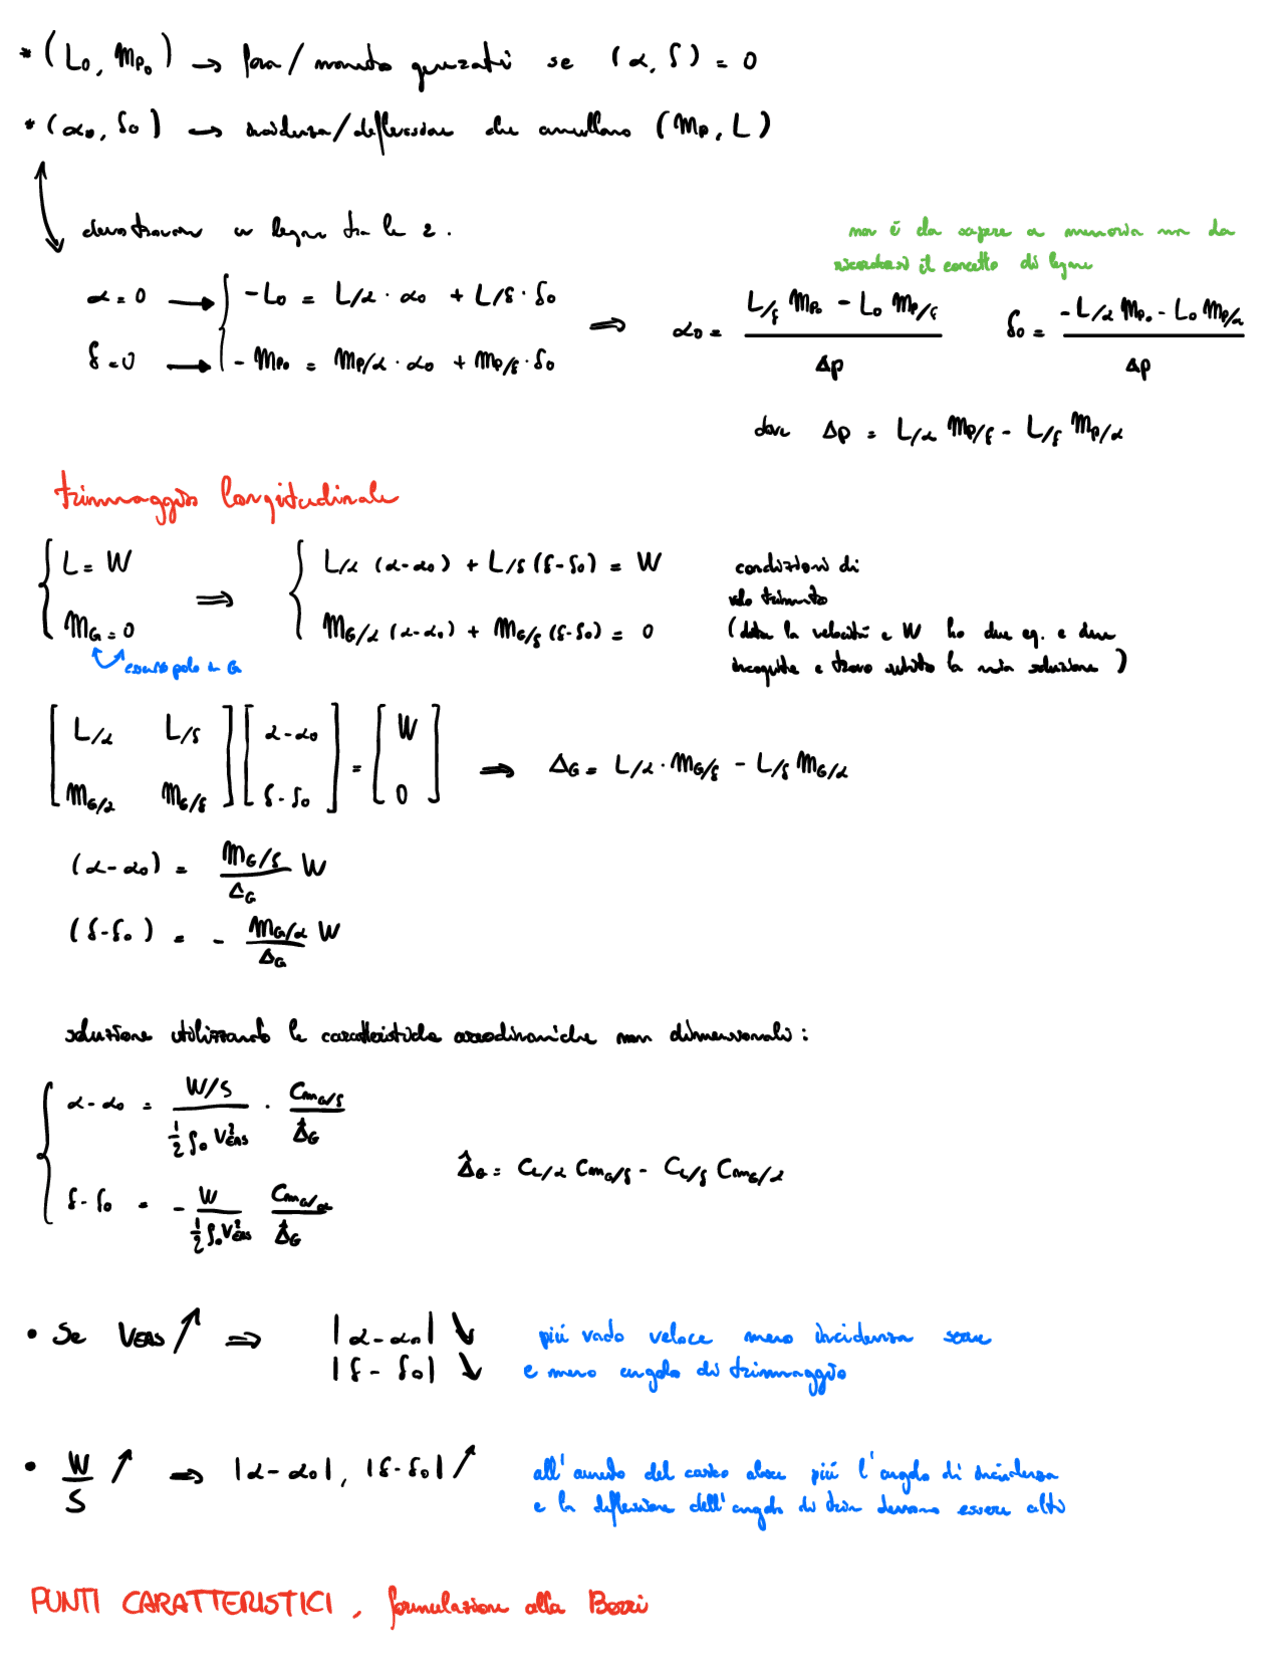 * (L₀, m_P₀) → forza / momento generati se (α, δ) = 0
* (α₀, δ₀) → incidenza/deflessione che annullano (m_P, L)
dimostrazione legare tra le 2.
non è da sapere a memoria ma da
ricordarsi il concetto di legame
α = 0 → { -L₀ = L/α · α₀ + L/δ · δ₀
δ = 0 → { - m_P₀ = m_P/α · α₀ + m_P/δ · δ₀
⇒ α₀ = (L/δ m_P₀ - L₀ m_P/δ) / Δp
δ₀ = (-L/α m_P₀ - L₀ m_P/α) / Δp
dove Δp = L/α m_P/δ - L/δ m_P/α
trimmaggio longitudinale
{ L = W ⇒ { L/α (α-α₀) + L/δ (δ-δ₀) = W
{ m_G = 0 { m_G/α (α-α₀) + m_G/δ (δ-δ₀) = 0
condizioni di
volo trimmato
(data la velocità e W ho due eq. e due
incognite e trovo subito la mia soluzione)
polo in G
[ L/α L/δ ; m_G/α m_G/δ ] [ α-α₀ ; δ-δ₀ ] = [ W ; 0 ] ⇒ Δ_G = L/α · m_G/δ - L/δ m_G/α
(α-α₀) = (m_G/δ / Δ_G) W
(δ-δ₀) = - (m_G/α / Δ_G) W
soluzione utilizzando le caratteristiche aerodinamiche non dimensionali:
{ α-α₀ = (W/S) / (½ ρ₀ V²_EAS) · C_mG/δ / Δ̂_G
Δ̂_G = C_L/α C_mG/δ - C_L/δ C_mG/α
{ δ-δ₀ = - W / (½ ρ₀ V²_EAS) C_mG/α / Δ̂_G
• Se V_EAS ↗ ⇒ |α-α₀| ↘ più vado veloce meno incidenza serve
|δ - δ₀| ↘ e meno angolo di trimmaggio
• W/S ↗ ⇒ |α-α₀|, |δ-δ₀| ↗ all'aumento del carico alare più l'angolo di incidenza
e la deflessione dell'angolo di trim devono essere alti
PUNTI CARATTERISTICI, formulazione alla Borri